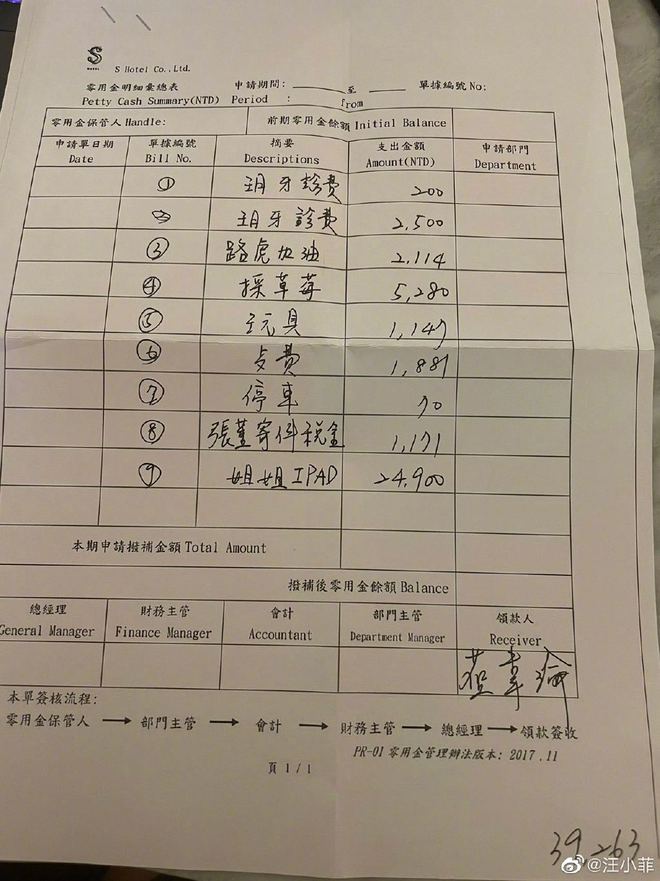 S
HOTEL
S Hotel Co.,Ltd.
零用金明細彙總表 申請期間: 至 單據編號 No:
Petty Cash Summary(NTD) Period : from
零用金保管人 Handle: 前期零用金餘額 Initial Balance
申請單日期 單據編號 摘要 支出金額 申請部門
Date Bill No. Descriptions Amount(NTD) Department
① 玥牙診費 200
② 玥牙診費 2,500
③ 路虎加油 2,114
④ 採草莓 5,280
⑤ 玩具 1,147
⑥ 費 1,881
⑦ 停車 70
⑧ 張董寄件稅金 1,171
⑨ 姐姐IPAD 24,900
本期申請撥補金額 Total Amount
撥補後零用金餘額 Balance
總經理 財務主管 會計 部門主管 領款人
General Manager Finance Manager Accountant Department Manager Receiver
本單簽核流程:
零用金保管人 → 部門主管 → 會計 → 財務主管 → 總經理 → 領款簽收
PR-01 零用金管理辦法版本: 2017.11
頁 1 / 1
39,263
@汪小菲